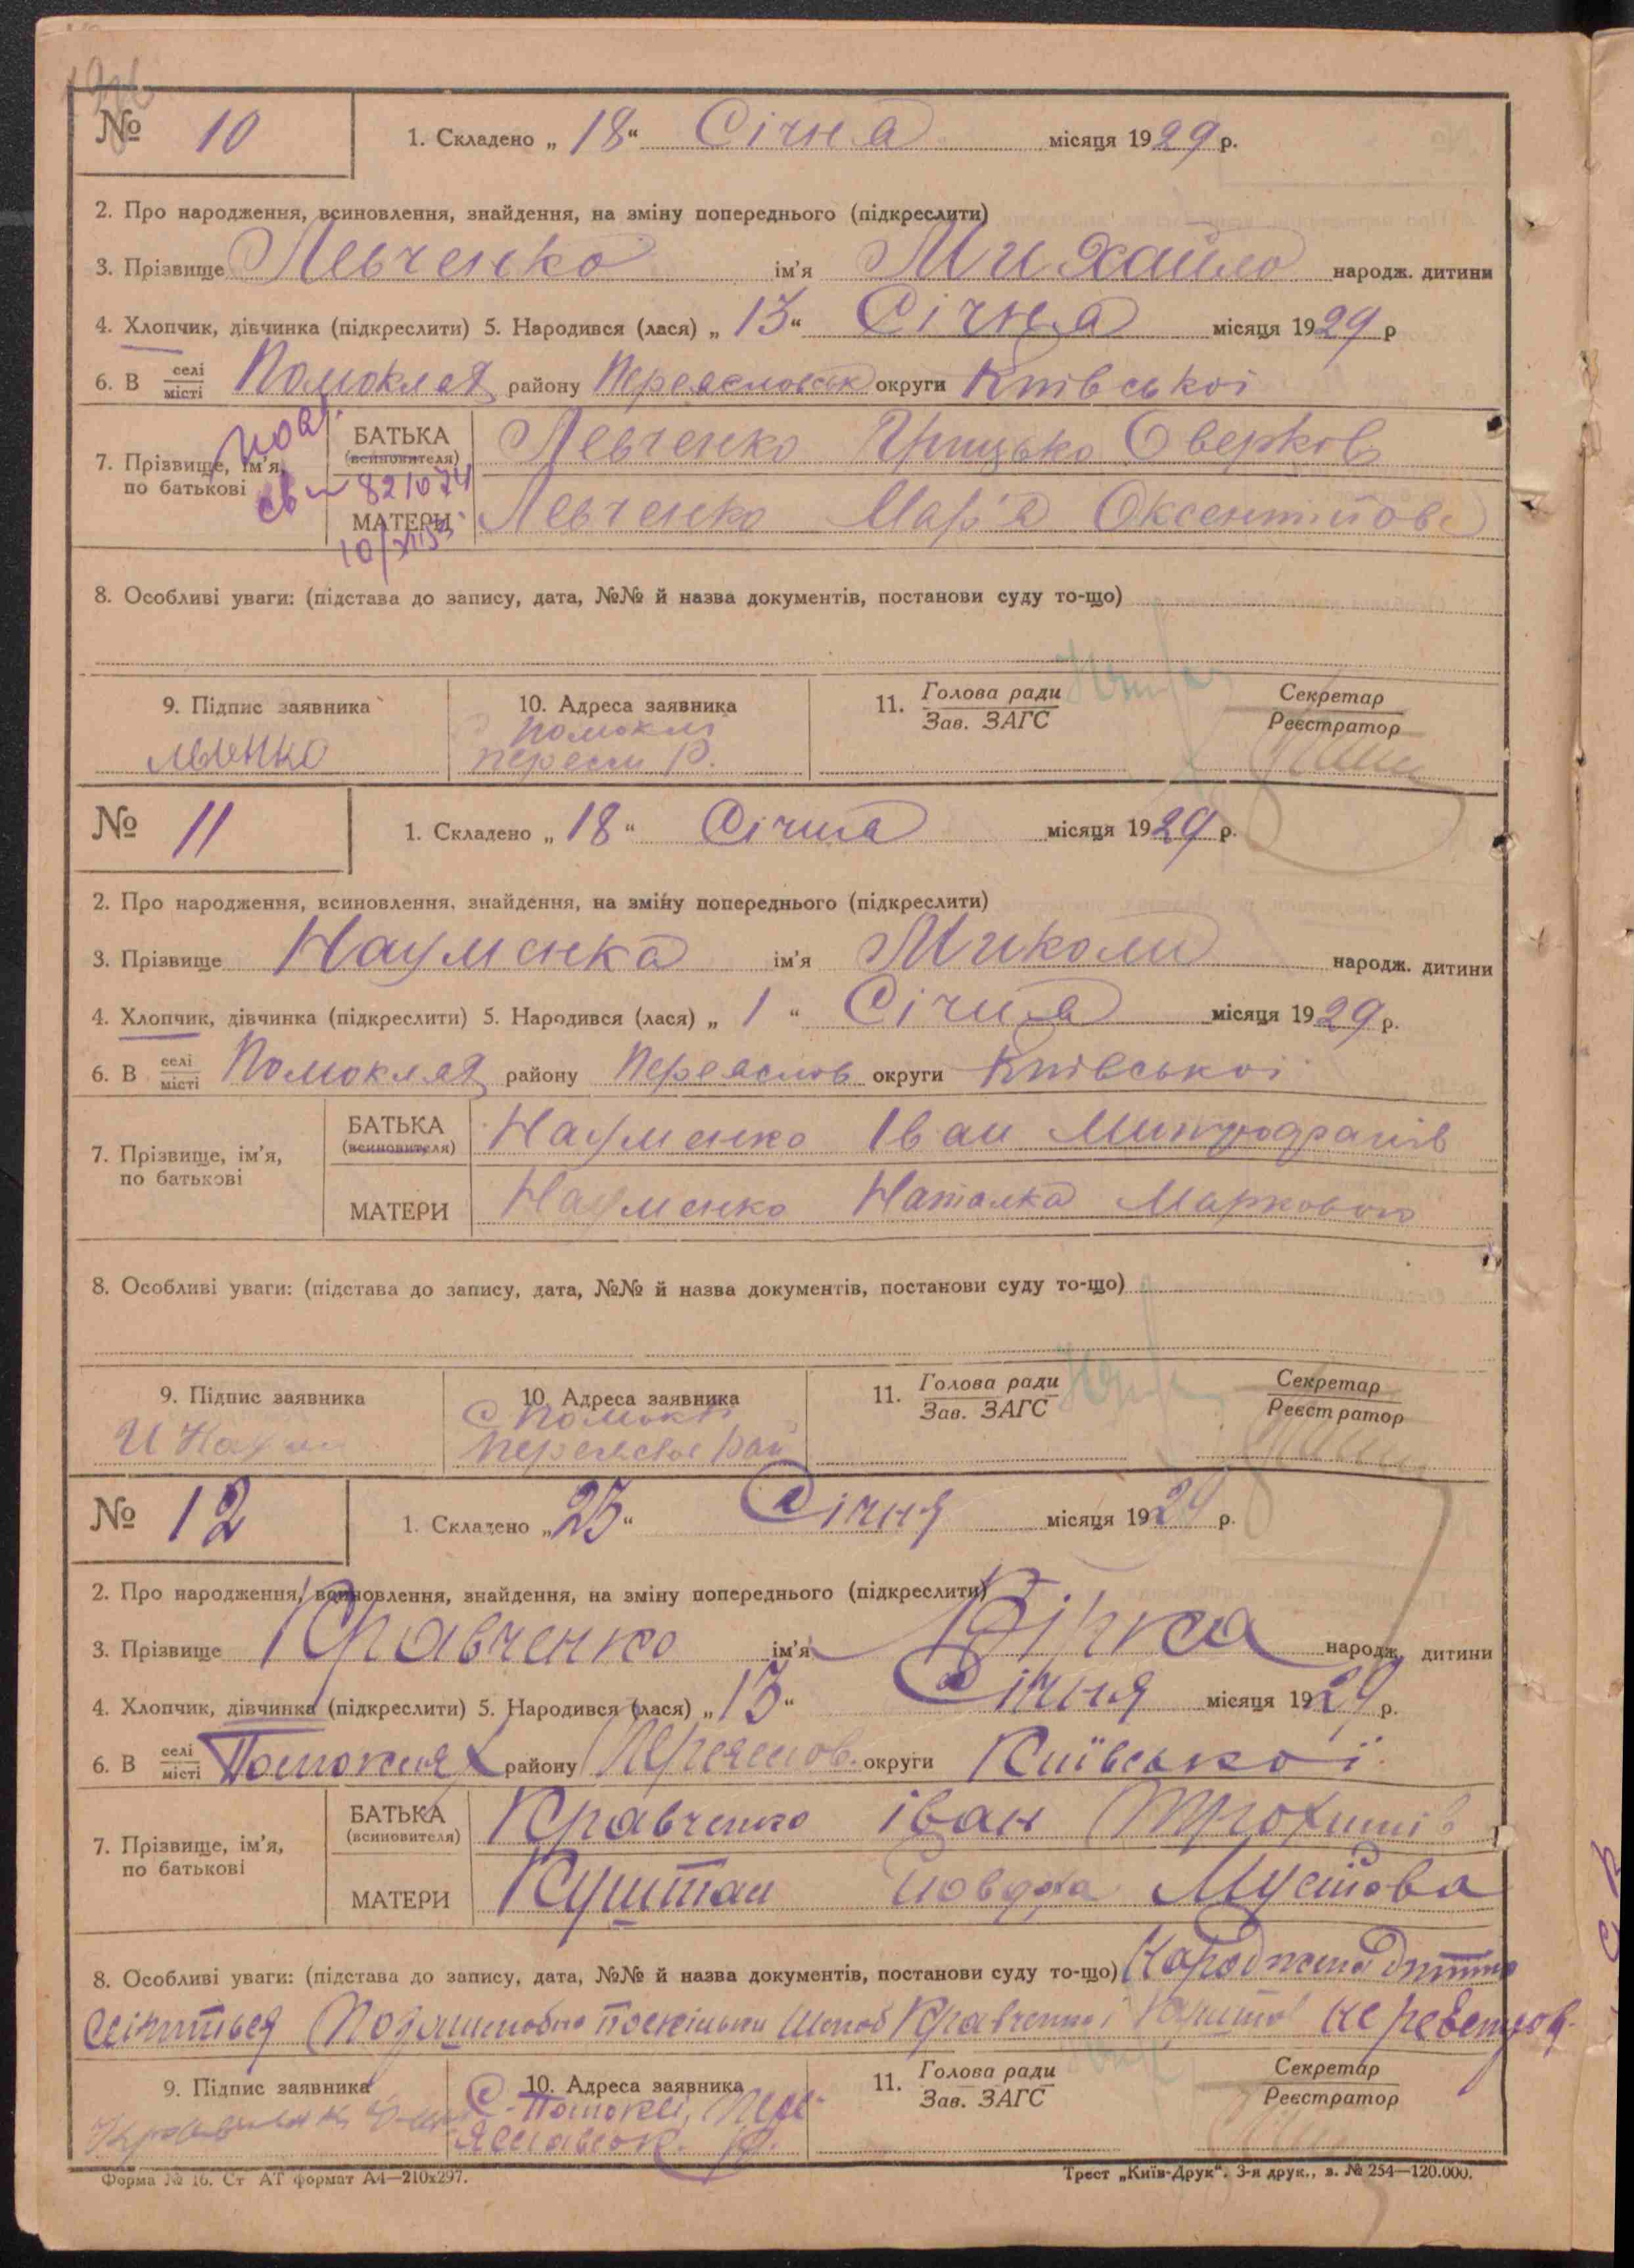 № 10
1. Складено „18“ Січня місяця 1929 р.
2. Про народження, всиновлення, знайдення, на зміну попереднього (підкреслити)
3. Прізвище Левченко ім'я Михайло народж. дитини
4. Хлопчик, дівчинка (підкреслити) 5. Народився (лася) „13“ Січня місяця 1929 р
6. В селі місті Помоклях району Переясловськ округи Київської
7. Прізвище, ім'я, по батькові
БАТЬКА (всиновителя) Левченко Грицько Оверків
82107
МАТЕРИ Левченко Мар'а Оксентійова
8. Особливі уваги: (підстава до запису, дата, №№ й назва документів, постанови суду то-що)
9. Підпис заявника
10. Адреса заявника
Помоклі
11. Голова ради
Зав. ЗАГС
Секретар
Реєстратор
№ 11
1. Складено „18“ Січня місяця 1929 р.
2. Про народження, всиновлення, знайдення, на зміну попереднього (підкреслити)
3. Прізвище Науменка ім'я Миколи народж. дитини
4. Хлопчик, дівчинка (підкреслити) 5. Народився (лася) „1“ Січня місяця 1929 р.
6. В селі місті Помоклях району Переяслов округи Київської
7. Прізвище, ім'я, по батькові
БАТЬКА (всиновителя) Науменко Іван
МАТЕРИ Науменко Наталка Маркович
8. Особливі уваги: (підстава до запису, дата, №№ й назва документів, постанови суду то-що)
9. Підпис заявника
10. Адреса заявника
С Помоклі
11. Голова ради
Зав. ЗАГС
Секретар
Реєстратор
№ 12
1. Складено „23“ Січня місяця 1929 р.
2. Про народження, всиновлення, знайдення, на зміну попереднього (підкреслити)
3. Прізвище Кравченко ім'я Вірка народж. дитини
4. Хлопчик, дівчинка (підкреслити) 5. Народився (лася) „13“ Січня місяця 1929 р.
6. В селі місті Помоклях району Переяслов. округи Київської
7. Прізвище, ім'я, по батькові
БАТЬКА (всиновителя) Кравченко Іван Трохимів
МАТЕРИ Куштан Мусіова
8. Особливі уваги: (підстава до запису, дата, №№ й назва документів, постанови суду то-що) Народжена дитина
Кравченко і не
9. Підпис заявника
10. Адреса заявника
С. Помоклі, Пере-
яславськ. р.
11. Голова ради
Зав. ЗАГС
Секретар
Реєстратор
Форма № 16. Ст АТ формат А4—210х297.
Трест „Київ-Друк“. 3-я друк., з. № 254—120.000.